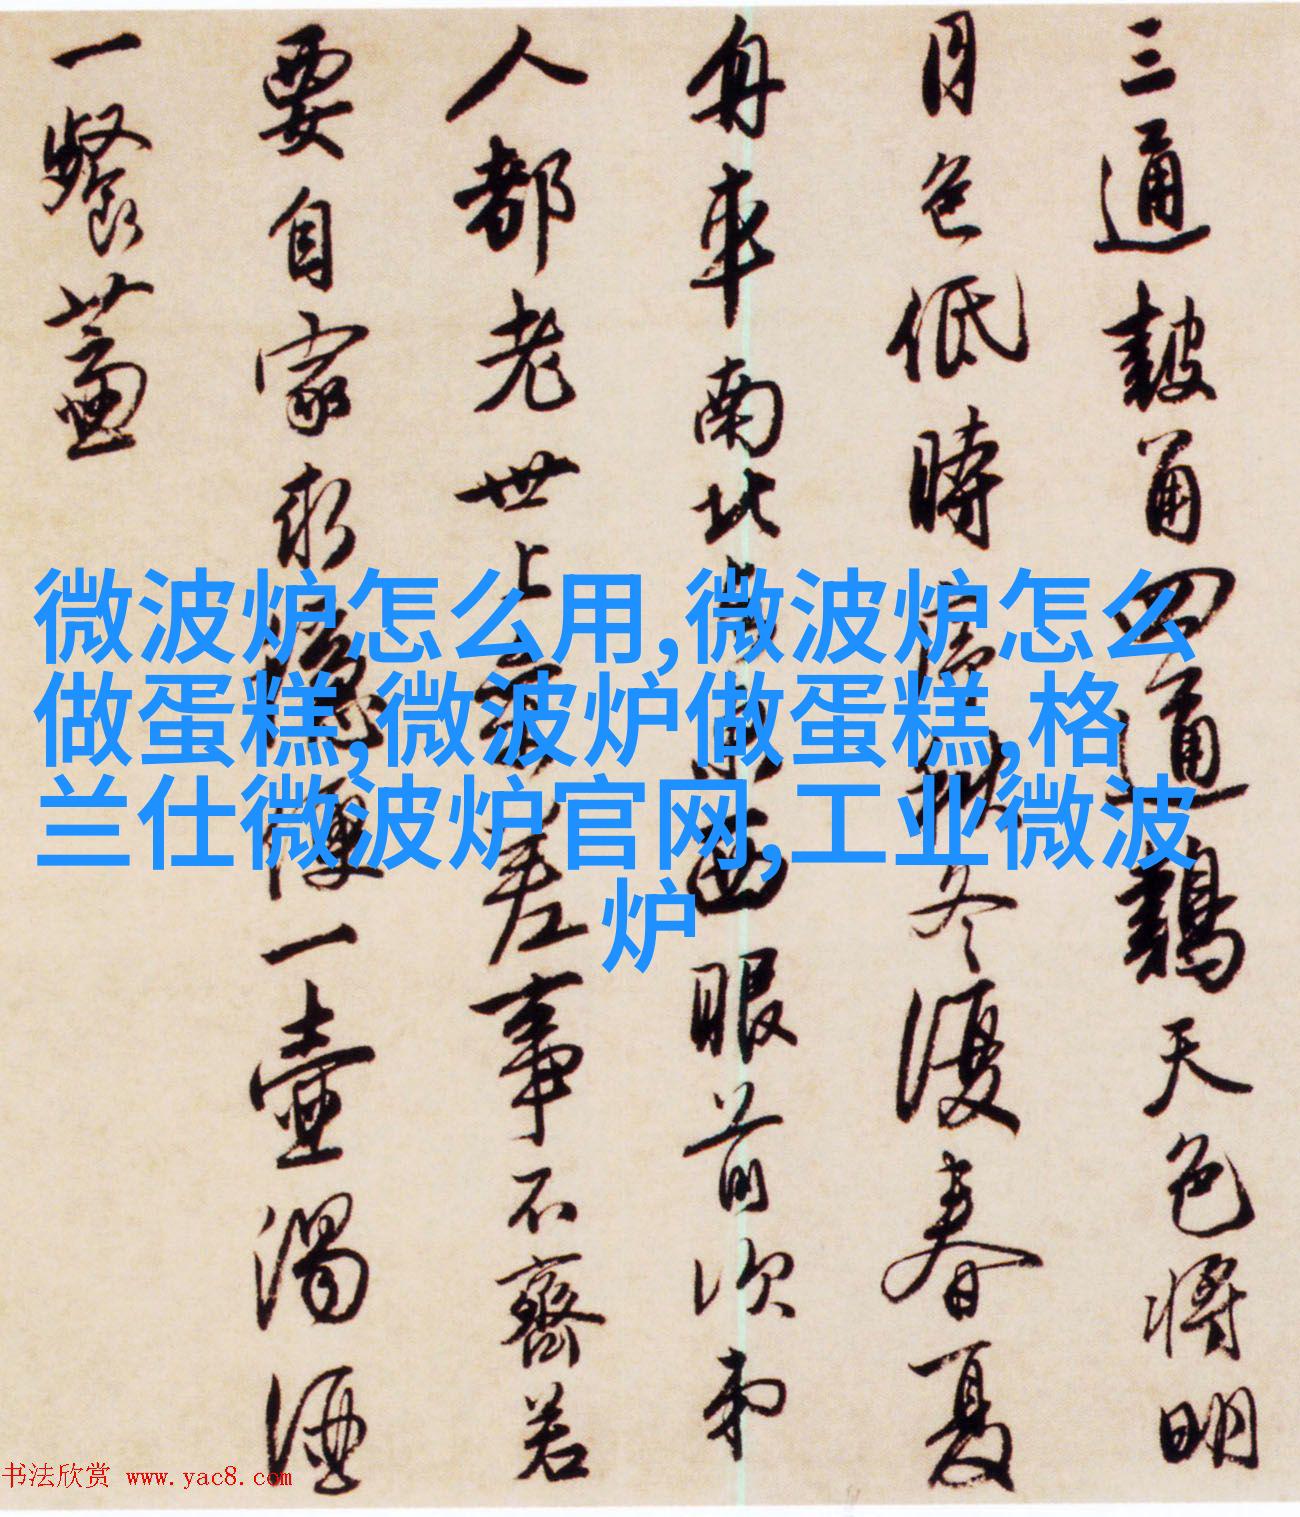 三通鼓角四通鷄天色將明
月色低時
冬復春夏
舟車南北
眼前次弟
人都老世上
差事不齊若
要自家求
一壺濁酒
一餐薺
微波炉怎么用,微波炉怎么
做蛋糕,微波炉做蛋糕,格
兰仕微波炉官网,工业微波
炉
书法欣赏 www.yac8.com